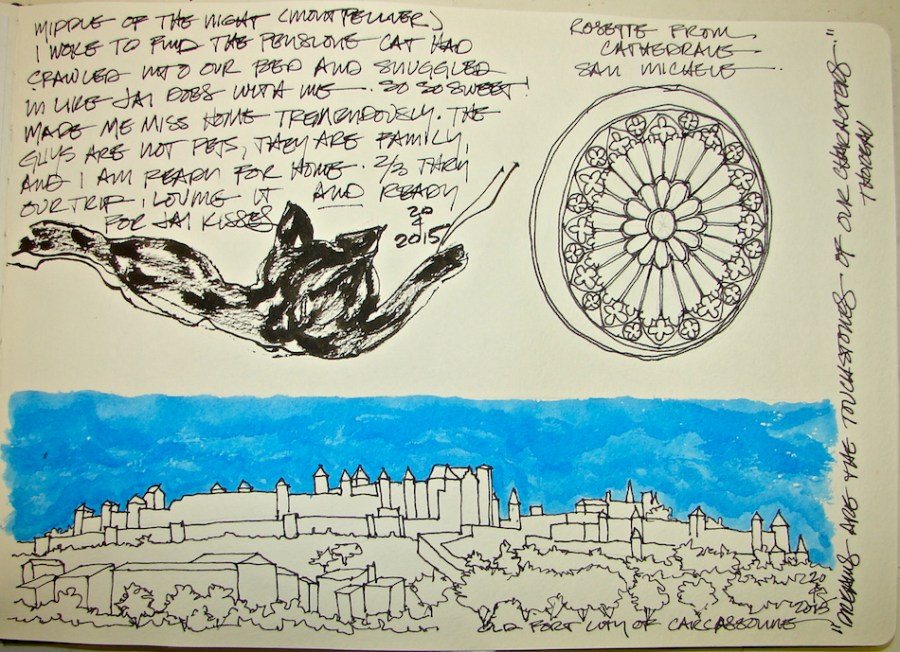 MIDDLE OF THE NIGHT (MONTPELLIER)
I WOKE TO FIND THE PENSIONE CAT HAD
CRAWLED INTO OUR BED AND SNUGGLED
IN LIKE JAI DOES WITH ME. SO SO SWEET!
MADE ME MISS HOME TREMENDOUSLY. THE
GUYS ARE NOT PETS, THEY ARE FAMILY,
AND I AM READY FOR HOME. 2/3 THRU
OUR TRIP, LOVING IT AND READY
FOR JAI KISSES
20
4
2015
ROSETTE FROM
CATHEDRALE
SAN MICHELE
"DREAMS ARE THE TOUCHSTONES OF OUR CHARACTERS."
THOREAU
20
2015
OLD FORT CITY OF CARCASSONNE